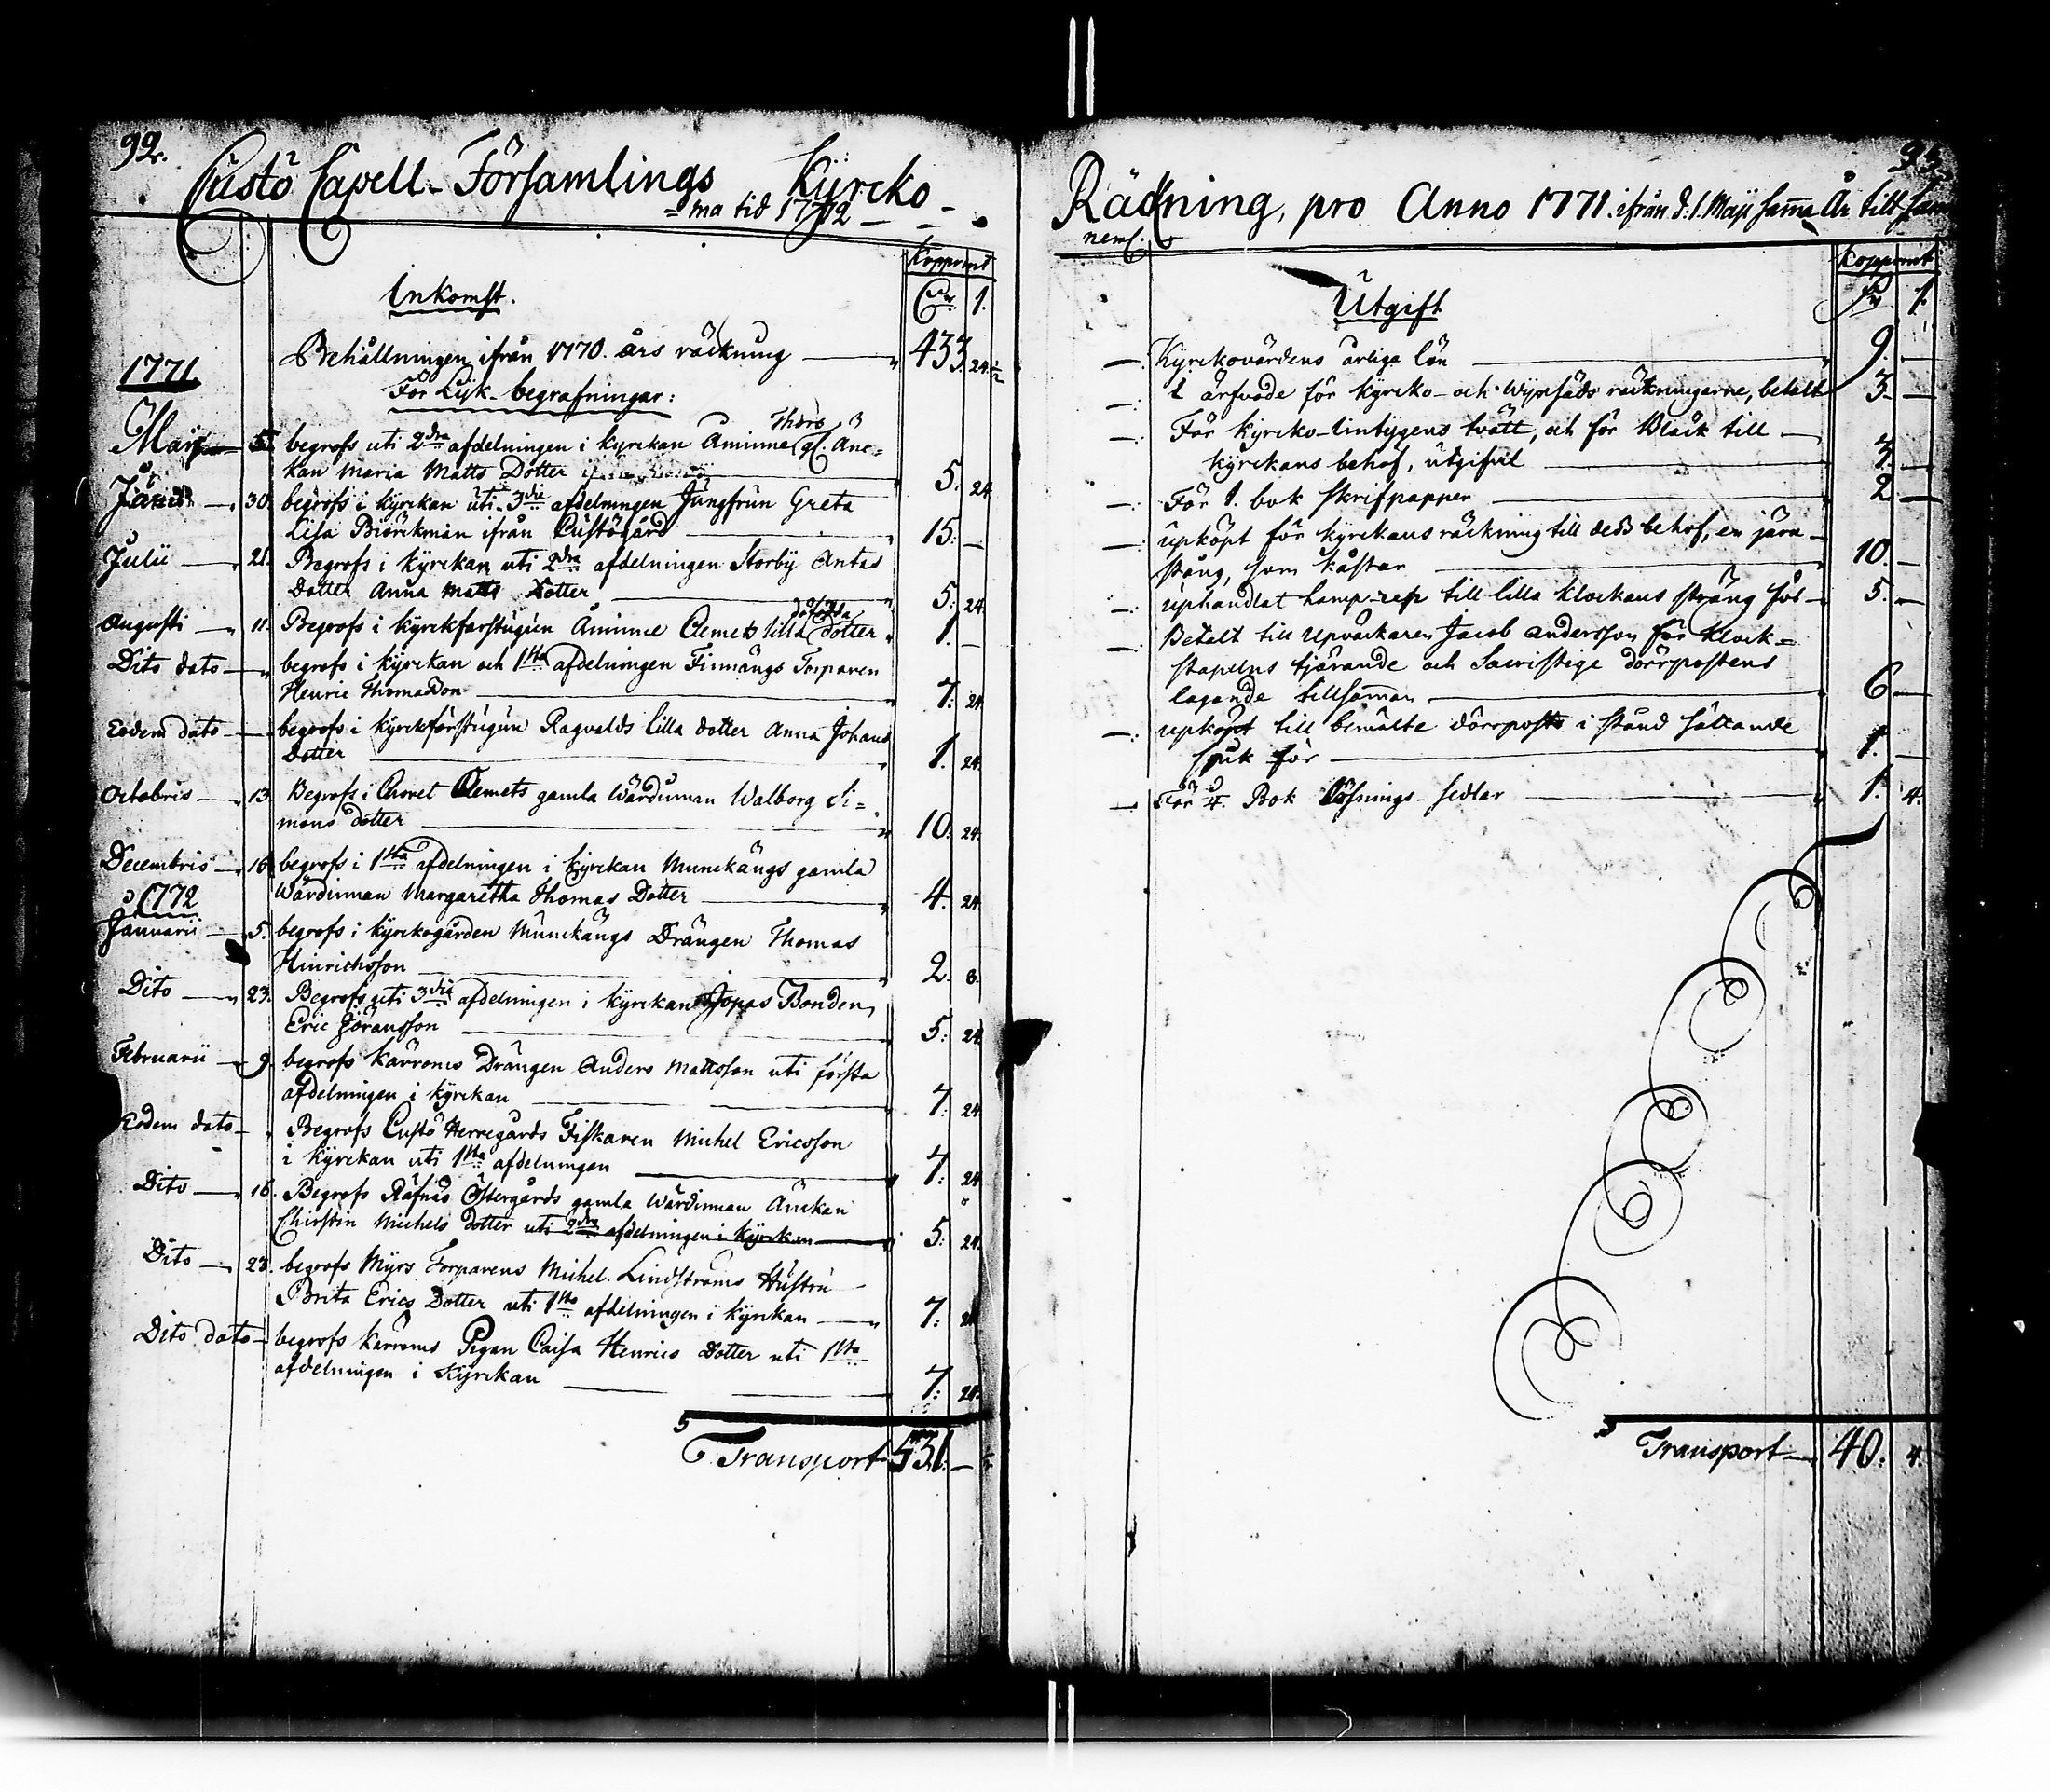 92.
Custö Capell-Församlings Kyrcko-
=ma tid 1772
Kopparmt
Inkomst.
1.
Behållningen ifrån 1770. års räckning 433. 24. 1/2
1771
För Lijk-begrafningar:
Thors
Maji 5. begrofs uti 2dra afdelningen i kyrckan Åminne gl. Änc=
kan Maria Matts Dotter 5. 24.
Junii 30. begrofs i kyrckan uti 3die afdelningen Jungfrun Greta
Lisa Biörckman ifrån Custögård 15. –
Julii 21. Begrofs i kyrckan uti 2dra afdelningen Storby Antas
Dotter Anna Matts Dotter 5. 24.
Augusti 11. Begrofs i kyrckfarstugun Åminne Clemets lilla dotter 1. –
Dito dato begrofs i kyrckan och 1sta afdelningen Finnängs Torparen
Henric Thomasson 7. 24.
Eodem dato begrofs i kyrckförstugun Ragvalds lilla dotter Anna Johans
Dotter 1. 24.
Octobris 13. Begrofs i Choret Clemets gamla Wärdinnan Walborg Si=
mons dotter 10. 24.
Decembris 16. begrofs i 1sta afdelningen i kyrckan Munckängs gamla
Wärdinnan Margaretha Thomas Dotter 4. 24.
1772
Januarii 5. begrofs i kyrckogården Munckängs Drängen Thomas
Hinrichsson 2. 8.
Dito 23. Begrofs uti 3die afdelningen i kyrckan Jopas Bonden
Eric Göransson 5. 24.
Februarii 9. begrofs Kärroms Drängen Anders Mattsson uti första
afdelningen i kyrckan 7. 24.
Eodem dato Begrofs Custö Herregårds Fiskaren Michel Ericsson
i kyrckan uti 1sta afdelningen 7. 24.
Dito 16. Begrofs Räfnäs Östergårds gamla Wärdinnan Änckan
Chirstin Michels dotter uti 2dra afdelningen i Kyrckan 5. 24.
Dito 23. begrofs Myrs Torparens Michel Lindströms Hustru
Brita Erics Dotter uti 1sta afdelningen i kyrckan 7. 24.
Dito dato begrofs Kärroms Pigan Caisa Henrics Dotter uti 1sta
afdelningen i Kyrckan 7. 24.
Transport 531. –
93.
Räckning, pro Anno 1771. ifrån d: 1. Maji samma År till sam
neml.
Kopparmt
Utgift
1.
Kyrckovärdens årliga lön 9. –
I arfvode för Kyrcko- och Wijnsäds räckningarne, betalt 3. –
För Kyrcko-lintygens tvätt, och för Bläck till
kyrckans behof, utgifvit 3. –
För 1. bok skrifpapper 2. –
upköpt för kyrckans räckning till dess behof, en järn-
stång, som kåstar 10. –
uphandlat hamp-rep till lilla klockans sträng för 5. –
Betalt till Upväckaren Jacob Andersson för Klock=
stapelns tjärande och Sacristige dörrpostens
lagande tillsamman 6. –
upköpt till bemälte dörrposts i stånd sättande
spik för 1. –
För 3/4. Bok Lösnings-sedlar 1. 4.
Transport 40. 4.